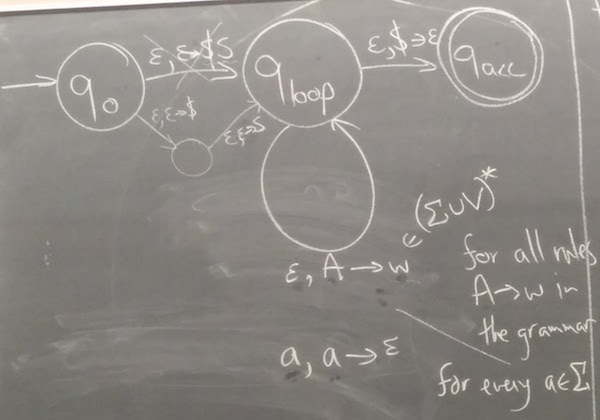 ε, ε→$S
ε, $→ε
q₀
q loop
q acc
ε, ε→$
ε, ε→S
(Σ∪V)*
∈
ε, A→w
for all rules
A→w in
the grammar
a, a→ε
for every a∈Σ